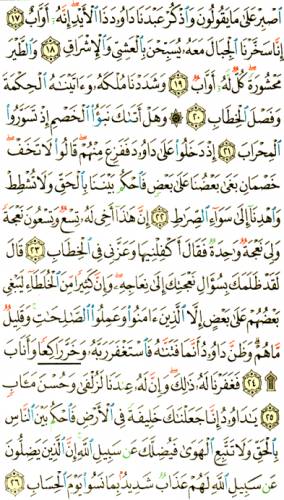 ٱصۡبِرۡ عَلَىٰ مَا يَقُولُونَ وَٱذۡكُرۡ عَبۡدَنَا دَاوُۥدَ ذَا ٱلۡأَيۡدِ إِنَّهُۥٓ أَوَّابٌ ١٧
إِنَّا سَخَّرۡنَا ٱلۡجِبَالَ مَعَهُۥ يُسَبِّحۡنَ بِٱلۡعَشِيِّ وَٱلۡإِشۡرَاقِ ١٨ وَٱلطَّيۡرَ
مَحۡشُورَةٗۖ كُلّٞ لَّهُۥٓ أَوَّابٞ ١٩ وَشَدَدۡنَا مُلۡكَهُۥ وَءَاتَيۡنَٰهُ ٱلۡحِكۡمَةَ
وَفَصۡلَ ٱلۡخِطَابِ ٢٠ ۞ وَهَلۡ أَتَىٰكَ نَبَؤُاْ ٱلۡخَصۡمِ إِذۡ تَسَوَّرُواْ
ٱلۡمِحۡرَابَ ٢١ إِذۡ دَخَلُواْ عَلَىٰ دَاوُۥدَ فَفَزِعَ مِنۡهُمۡۖ قَالُواْ لَا تَخَفۡۖ
خَصۡمَانِ بَغَىٰ بَعۡضُنَا عَلَىٰ بَعۡضٖ فَٱحۡكُم بَيۡنَنَا بِٱلۡحَقِّ وَلَا تُشۡطِطۡ
وَٱهۡدِنَآ إِلَىٰ سَوَآءِ ٱلصِّرَٰطِ ٢٢ إِنَّ هَٰذَآ أَخِي لَهُۥ تِسۡعٞ وَتِسۡعُونَ نَعۡجَةٗ
وَلِيَ نَعۡجَةٞ وَٰحِدَةٞ فَقَالَ أَكۡفِلۡنِيهَا وَعَزَّنِي فِي ٱلۡخِطَابِ ٢٣ قَالَ
لَقَدۡ ظَلَمَكَ بِسُؤَالِ نَعۡجَتِكَ إِلَىٰ نِعَاجِهِۦۖ وَإِنَّ كَثِيرٗا مِّنَ ٱلۡخُلَطَآءِ لَيَبۡغِي
بَعۡضُهُمۡ عَلَىٰ بَعۡضٍ إِلَّا ٱلَّذِينَ ءَامَنُواْ وَعَمِلُواْ ٱلصَّٰلِحَٰتِ وَقَلِيلٞ
مَّا هُمۡۗ وَظَنَّ دَاوُۥدُ أَنَّمَا فَتَنَّٰهُ فَٱسۡتَغۡفَرَ رَبَّهُۥ وَخَرَّۤ رَاكِعٗاۤ وَأَنَابَ
۩ ٢٤ فَغَفَرۡنَا لَهُۥ ذَٰلِكَۖ وَإِنَّ لَهُۥ عِندَنَا لَزُلۡفَىٰ وَحُسۡنَ مَـَٔابٖ
٢٥ يَٰدَاوُۥدُ إِنَّا جَعَلۡنَٰكَ خَلِيفَةٗ فِي ٱلۡأَرۡضِ فَٱحۡكُم بَيۡنَ ٱلنَّاسِ
بِٱلۡحَقِّ وَلَا تَتَّبِعِ ٱلۡهَوَىٰ فَيُضِلَّكَ عَن سَبِيلِ ٱللَّهِۚ إِنَّ ٱلَّذِينَ يَضِلُّونَ
عَن سَبِيلِ ٱللَّهِ لَهُمۡ عَذَابٞ شَدِيدُۢ بِمَا نَسُواْ يَوۡمَ ٱلۡحِسَابِ ٢٦